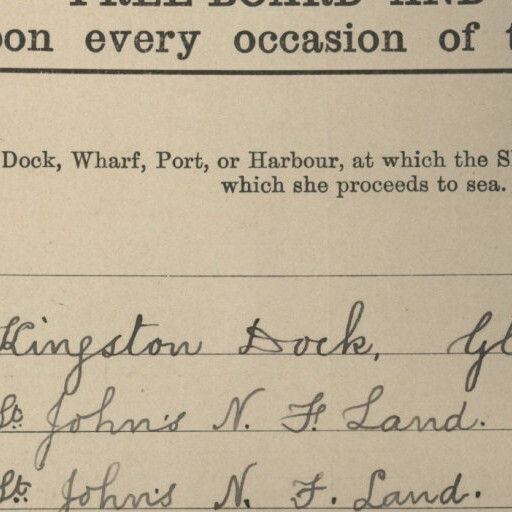 FREE BOARD AND
on every occasion of t
Dock, Wharf, Port, or Harbour, at which the S
which she proceeds to sea.
Kingston Dock, Gl
St. John's N. F. Land.
St. John's N. F. Land.